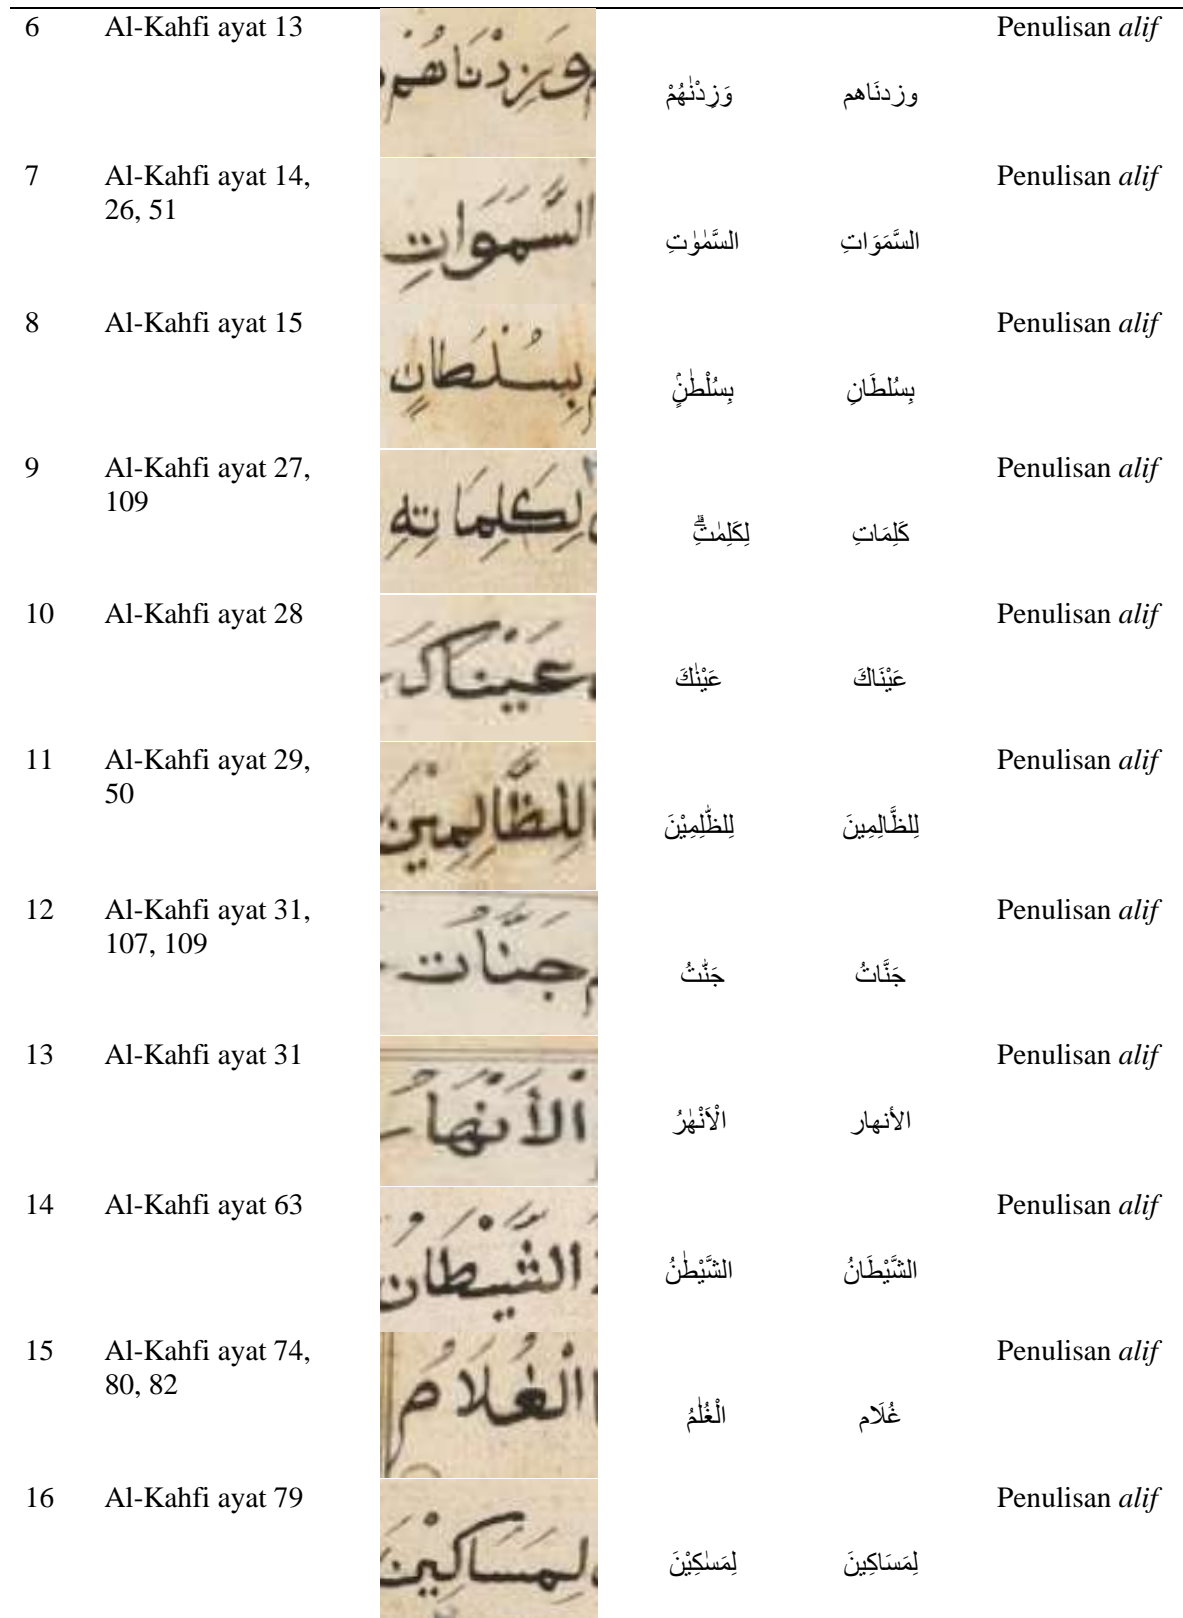 6 Al-Kahfi ayat 13 وَزِدْنَاهُمْ وَزِدْنٰهُمْ وزدنَاهم Penulisan alif
7 Al-Kahfi ayat 14, السَّمَوَاتِ السَّمٰوٰتِ السَّمَوَاتِ Penulisan alif
26, 51
8 Al-Kahfi ayat 15 بِسُلْطَانٍ بِسُلْطٰنٍۢ بِسُلطَانِ Penulisan alif
9 Al-Kahfi ayat 27, لِكَلِمَاتِهِ لِكَلِمٰتِهٖۗ كَلِمَاتِ Penulisan alif
109
10 Al-Kahfi ayat 28 عَيْنَاكَ عَيْنٰكَ عَيْنَاكَ Penulisan alif
11 Al-Kahfi ayat 29, لِلظَّالِمِيْنَ لِلظّٰلِمِيْنَ لِلظَّالِمِينَ Penulisan alif
50
12 Al-Kahfi ayat 31, جَنَّاتُ جَنّٰتُ جَنَّاتُ Penulisan alif
107, 109
13 Al-Kahfi ayat 31 الْأَنْهَارُ الْاَنْهٰرُ الأنهار Penulisan alif
14 Al-Kahfi ayat 63 الشَّيْطَانُ الشَّيْطٰنُ الشَّيْطَانُ Penulisan alif
15 Al-Kahfi ayat 74, الْغُلَامُ الْغُلٰمُ غُلَام Penulisan alif
80, 82
16 Al-Kahfi ayat 79 لِمَسَاكِيْنَ لِمَسٰكِيْنَ لِمَسَاكِينَ Penulisan alif